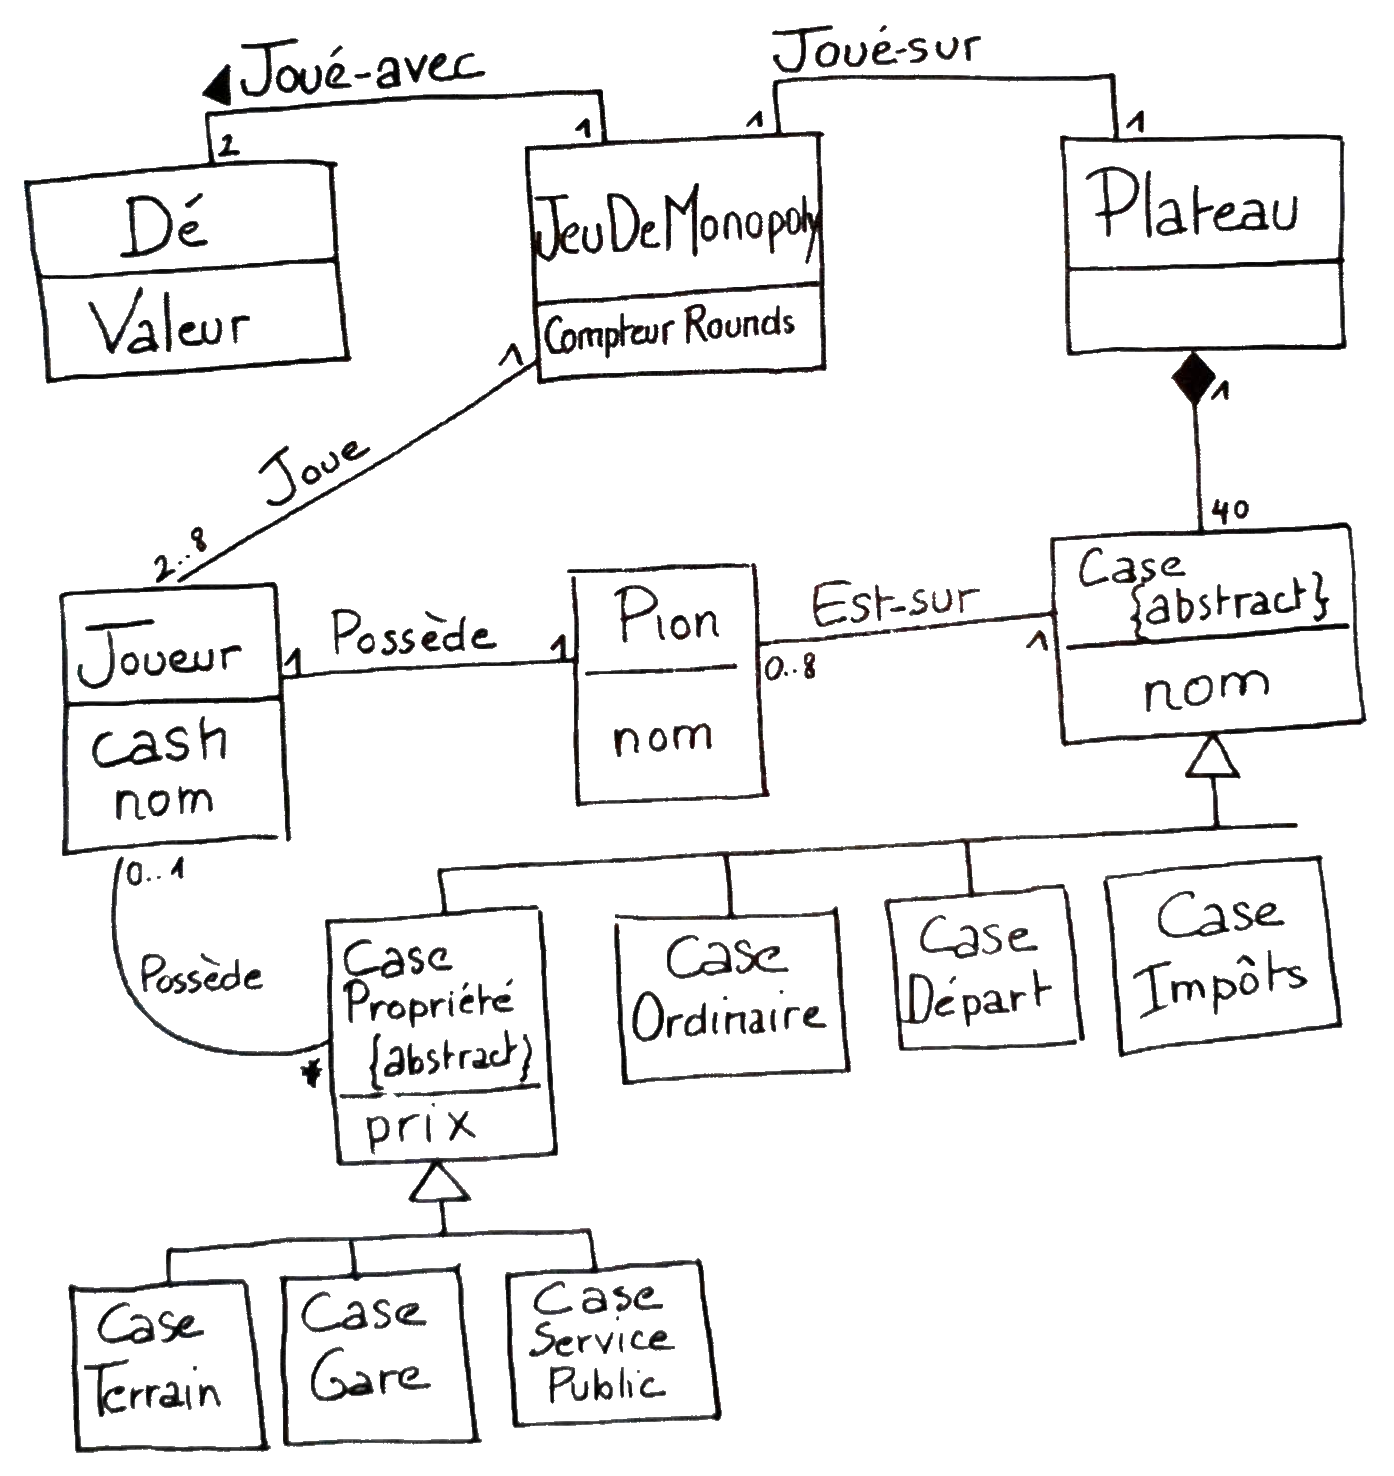 Joué-avec
Joué-sur
2
1
1
1
Dé
Valeur
JeuDeMonopoly
Compteur Rounds
Plateau
1
1
Joue
2..8
40
Joueur
cash
nom
1
Possède
1
Pion
nom
Est-sur
0..8
1
Case
{abstract}
nom
0..1
Possède
*
Case
Propriété
{abstract}
prix
Case
Ordinaire
Case
Départ
Case
Impôts
Case
Terrain
Case
Gare
Case
Service
Public